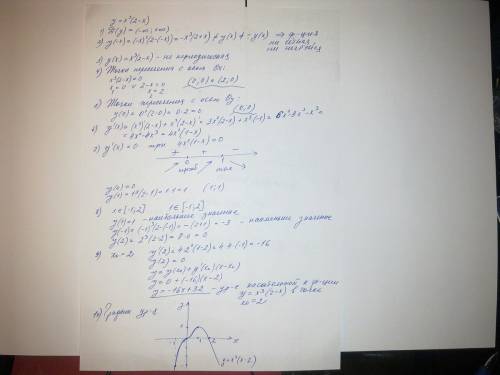 y=x³(2-x)
1) D(y) = (-∞; +∞)
2) y(-x) = (-x)³(2-(-x)) = -x³(2+x) ≠ y(x) ≠ -y(x) → ф-ция
ни чётная,
ни нечётная
3) y(x) = x³(2-x) - не периодическая
4) Точки пересечения с осью Ox:
x³(2-x)=0
x=0 ∪ 2-x=0
x=2
(0;0) (2;0)
5) Точки пересечения с осью Oy:
y(0) = 0³(2-0) = 0·2=0 (0;0)
6) y'(x) = (x³)'(2-x) + x³(2-x)' = 3x²(2-x) + x³(-1) = 6x²-3x³-x³=
= 6x²-4x³
7) y'(x) = 0 при
+ + -
0 1
y(0)=0
y(1) = 1³(2-1) = 1·1 = 1 (1;1)
8) 1∈[-1;2]
y(1)=1 - наибольшее значение
y(-1) = (-1)³(2-(-1)) = -(2+1) = -3 - наименьшее значение
y(2) = 2³(2-2) = 8·0 = 0
9) x₀ = 2
y(2) = 0
y = 0 + (-16)(x-2)
y = -16x+32 - ур-е касательной к ф-ции
y = x³(2-x) в точке
x₀=2
10) График ур-я
y
x
-1 1 2